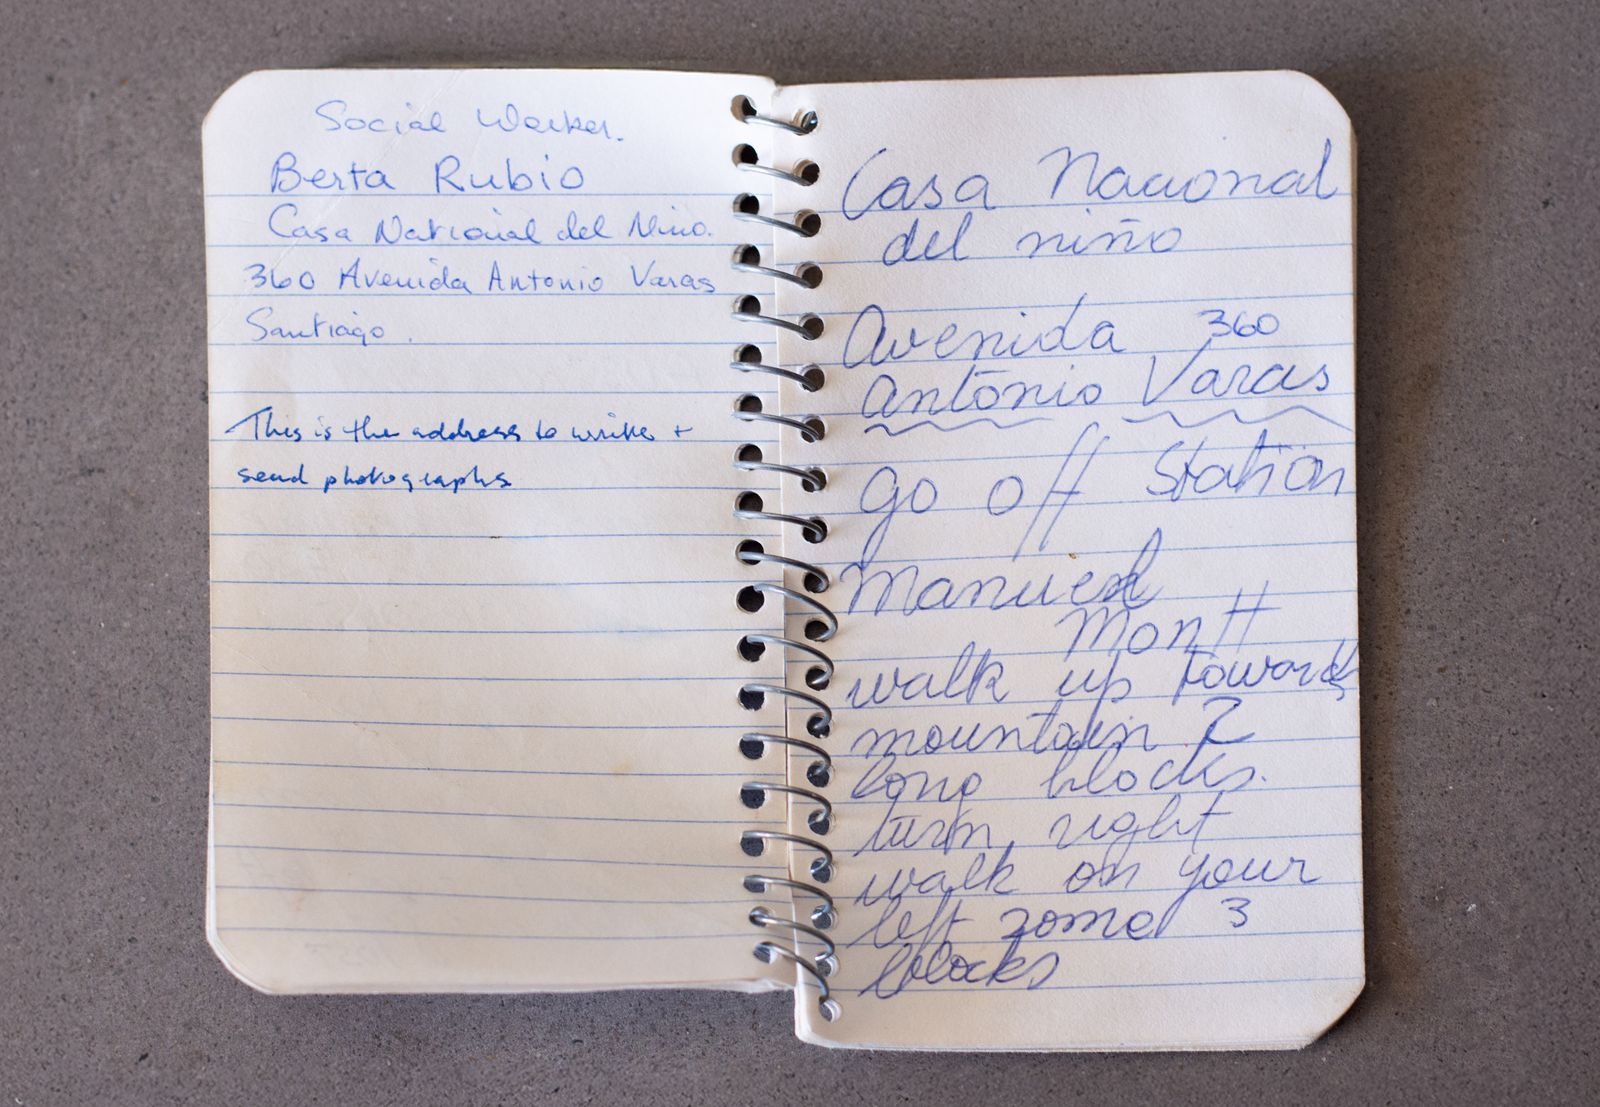 Social Worker.
Berta Rubio
Casa National del Nino.
360 Avenida Antonio Varas
Santiago.
This is the address to write +
send photographs
Casa Nacional
del niño
Avenida 360
Antonio Varas
go off Station
Manuel
Montt
walk up towards
mountain 2
long blocks.
turn right
walk on your
left some 3
blocks